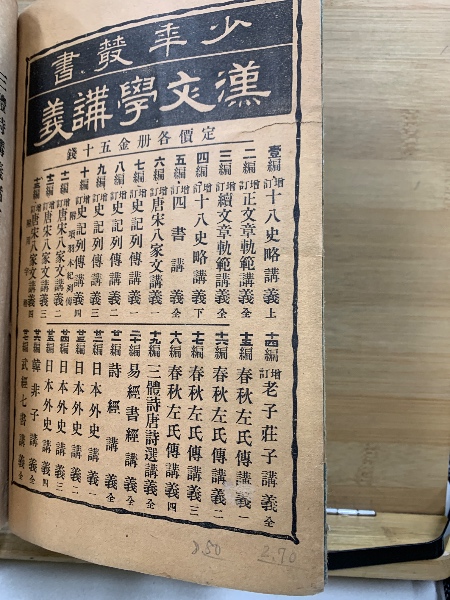 少年叢書
漢文學講義
定價各册金五十錢
壹編 增訂 十八史略講義 上
二編 增訂 正文章軌範講義 全
三編 增訂 續文章軌範講義 全
四編 增訂 十八史略講義 下
五編 增訂 四書講義 全
六編 增訂 唐宋八家文講義 一
七編 增訂 史記列傳講義 一
八編 增訂 史記列傳講義 二
九編 增訂 史記列傳講義 三
十編 增訂 史記列傳講義 四
十一編 增訂 唐宋八家文講義 二
十二編 增訂 唐宋八家文講義 三
十三編 增訂 唐宋八家文講義 四
十四編 增訂 老子莊子講義 全
十五編 春秋左氏傳講義 一
十六編 春秋左氏傳講義 二
十七編 春秋左氏傳講義 三
十八編 春秋左氏傳講義 四
十九編 三體詩唐詩選講義 全
二十編 易經書經講義 全
廿一編 詩經講義 全
廿二編 日本外史講義 一
廿三編 日本外史講義 二
廿四編 日本外史講義 三
廿五編 日本外史講義 四
廿六編 韓非子講義 全
廿七編 武經七書講義 全
2.70